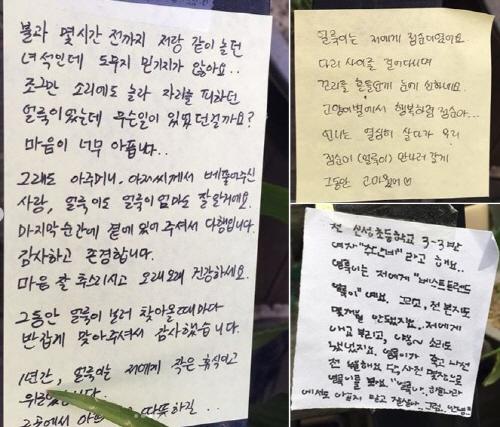 불과 몇시간 전까지 저랑 같이 놀던
녀석인데 도무지 믿기지가 않아요..
조그만 소리에도 놀라 자리를 피하던
얼룩이였는데 무슨일이 있었던걸까요?
마음이 너무 아픕니다..
그래도 아주머니, 아저씨께서 베풀어주신
사랑, 얼룩이도 얼룩이 엄마도 잘 알거예요.
마지막 순간에 곁에 있어 주셔서 다행입니다.
감사하고 존경합니다.
마음 잘 추스리시고 오래오래 건강하세요.
그동안 얼룩이 보러 찾아올때마다
반갑게 맞아주셔서 감사했습니다.
1년간, 얼룩이는 저에게 작은 휴식이고
그곳에서 따뜻하길..
얼룩이는 저에게 점순이였어요
다리 사이를 걸어다니며
꼬리를 흔들던게 눈에 선하네요.
고양이별에서 행복하렴 점순아...
언니는 열심히 살다가 우리
점순이(얼룩이) 만나러 갈게
그동안 고마웠어♡
전 신성초등학교 3-3반
여자 라고 해요..
얼룩이는 저에게 "베스트프렌드
얼룩이" 예요. 전 본지도
몇개월 안됐었지요.. 저에게
애교 부리고, 야옹이 소리도
냈었지요. 얼룩이가 죽고 나서
전 사진 몇장으로
얼룩이를 봐요.. "얼룩아,
에서도 아프지 말고 그럼.. 안녕"